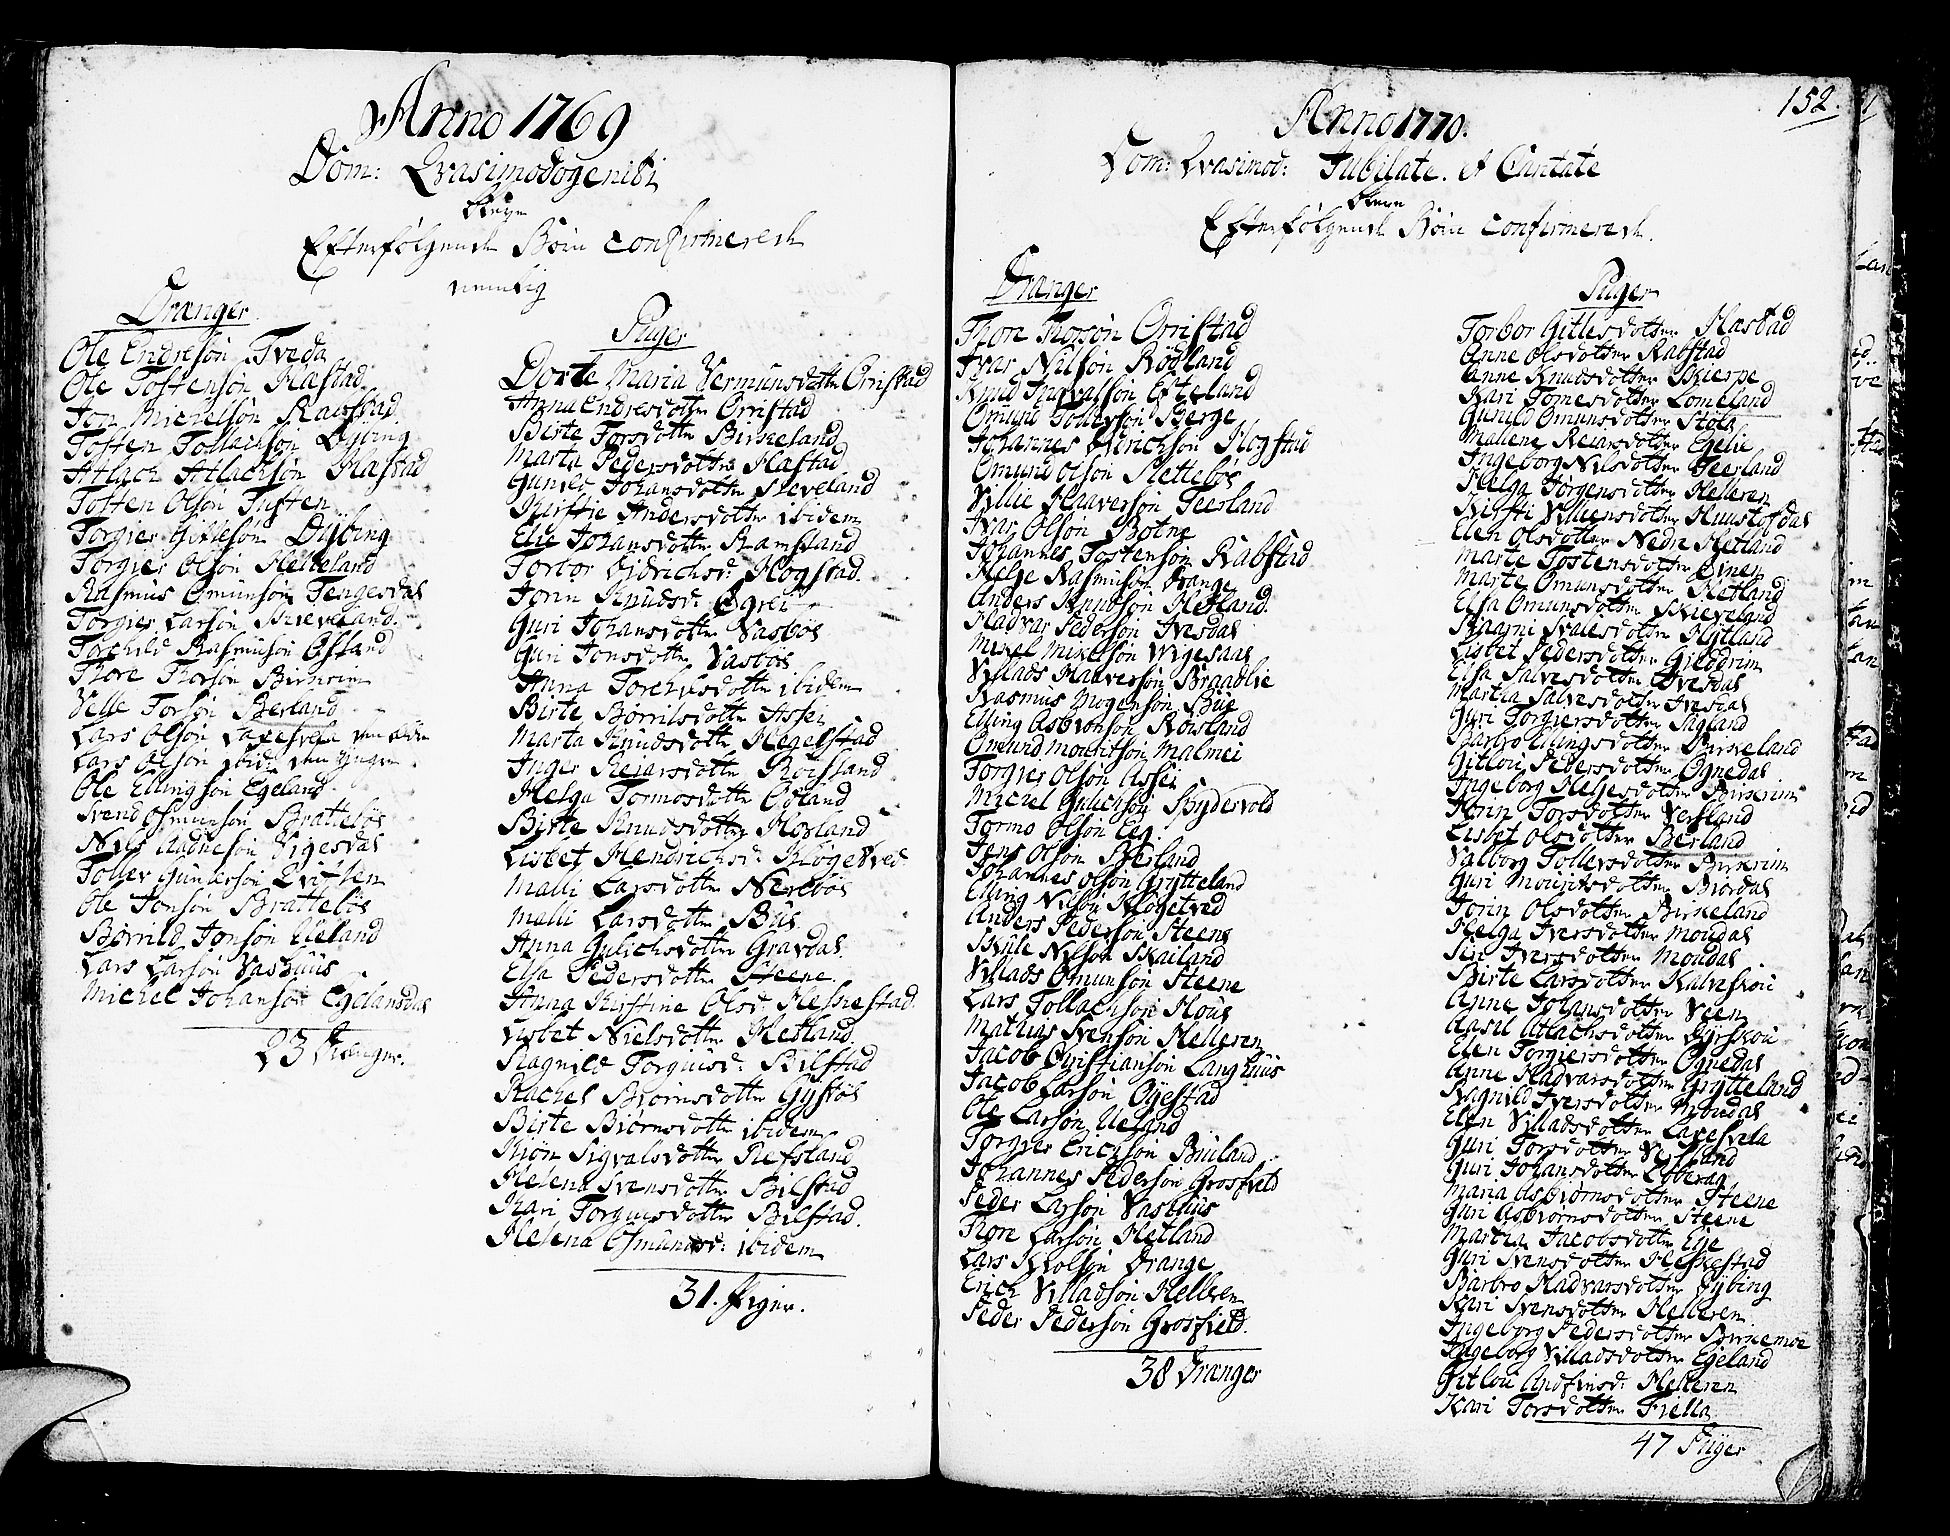 Anno 1769
Dom: Qvasimodogeniti
bleve
Efterfølgende Børn confirmerede
nemlig
Drænger.
Ole Endresøn Tveda
Ole Tostensøn Hafstad
Jon Michelsøn Rawstad
Tosten Tollachsøn Dybing
Atlach Atlachsøn Hafstad
Tosten Olsøn Tuften
Torgier Gitlesøn Dÿbing
Torgier Olsøn Helleland
Rasmus Omunsøn Tengesdal
Torgier Larsøn Skieveland
Torchild Rasmusøn Østand
Thore Thorsøn Birkrim
Velle Torsøn Berland
Lars Olsøn Laxesvela den eldre
Lars Olsøn ibid: den ÿngere
Ole Ellingsøn Egeland
Svend Osmunsøn Brattebøe
Nils Audnesøn Vigesdal
Toller Gundersøn Qviften
Ole Jonsøn Brattebøe
Børrild Jonsøn Ueland
Lars Larsøn Vashuus
Michel Johansøn Egelandsdal
23 Drænger.
Piiger
Dorte Maria Vermunsdotter Orrestad
Anna Endresdotter Orrestad
Birte Torsdotter Birkeland
Marta Pedersdotter Hafstad
Gunild Johansdotter Sleveland
Kirstie Andersdotter ibidem
Elie Johansdotter Ramsland
Torbor Didrichsd: Hogstad.
Jorin Knudsd: Øgrei
Guri Johansdotter Vasbøe
Guri Jonsdotter Vasbøe
Anna Torchelsdotter ibidem
Birte Børrilsdotter Assei
Marta Knudsdotter Hegelstad
Inger Reiarsdotter Røisland
Helga Tormosdotter Øvland
Birte Knudsdotter Hovland
Lisbet Hendrichsd: Kløgetved
Malli Larsdotter Nerebøe
Malli Larsdotter Bue
Anna Gulichsdotter Gravdal
Elsa Pedersdotter Steene
Anna Kirstine Olsd: Heskestad.
Lisbet Nielsdotter Hetland
Ragnild Torgiusd: Bilstad
Rachel Biørnsdotter Gystøl
Birte Biørnsdotter ibidem
Kiøn Sigvalsdotter Refsland
Helena Svensdotter Bilstad
Kari Torgiersdotter Bilstad.
Helena Osmundsd: ibidem
31. Piiger.
152.
Anno 1770.
Dom: Qvasimod: Jubilate. et Cantate
bleve
Efterfølgende Børn confirmerede.
Drænger
Thore Thorsøn Orrestad
Ivar Nilsøn Rødland
Knud Ingvalsøn Efteland
Omund Tollersøn Berge
Johannes Didrichsøn Hogstad
Omund Olsøn Slettebøe
Villie Haaversøn Seesland
Ivar Olsøn Botne
Johannes Tostensøn Rabstad
Helje Rasmusøn Drange
Anders Knudsøn Hetland.
Hadvar Pedersøn Ivesdal
Mikel Mikelsøn Wigesaae
Villads Haaversøn Braadlie
Rasmus Mogensøn Bue
Elling Asbiønsøn Røisland
Omund Mouritsøn Malmei
Torgier Olsøn Assei
Michel Gulichsøn Spydevold
Tormo Olsøn Eeg.
Jens Olsøn Berland
Johannes Olsøn Grytteland
Elling Nilsøn Kløgetved
Anders Pedersøn Steene
Skule Nilsøn Skailand
Villads Omunsøn Steene
Lars Tollachsøn Houe
Mathias Svensøn Helleren
Jacob Christiansøn Langhuus
Jacob Larsøn Øyestad
Ole Larsøn Ueland
Torgier Erichsøn Bruland
Johannes Pedersøn Grosfield
Peder Larsøn Vashuus
Thore Larsøn Hetland
Lars Kiølsøn Drange
Erich Villadsøn Helleren
Peder Pedersøn Grosfield.
38 Drænger
Piiger
Torbor Gitlesdotter Hafstad
Anne Olsdotter Rabstad
Anne Knudsdotter Skierpe
Kari Tomesdotter Lomeland
Gunild Omunsdotter Støle
Mallene Reiarsdotter Egelie
Ingeborg Nilsdotter Seesland
Helga Jørgensdotter Helleren
Kirsti Villiensdotter Hunstofdal
Elen Olsdotter Nedre Hetland
Marte Tostensdotter Oinen
Marte Omunsdotter Hetland
Elsa Omunsdotter Skieveland
Skaarni Svalesdotter Hytland
Lisbet Pedersdotter Gildrim
Elsa Salvesdotter Ivesdal
Martha Salvesdotter Ivesdal
Guri Torgiersdotter Sagland
Barbro Ellingsdotter Birkeland
Gitlou Pedersdotter Ognedal
Ingeborg Heljesdotter Birkrim
Jorin Torsdotter Versland
Lisbet Olsdotter Berland
Valborg Tollevsdotter Birkrim
Guri Mouritsdotter Biordal
Jorin Olsdotter Birkeland
Helga Iversdotter Moudal
Siri Iversdotter Moudal
Birte Larsdotter Kalveskou
Anne Johansdotter Veen
Aasil Atlachsdotter Byrskou
Elen Torgiersdotter Ognedal
Anne Hadvarsdotter Grytteland
Ragnild Iversdotter Moudal
Elen Villadsdotter Laxesvela
Guri Torsdotter Versland
Guri Johansdotter Egberag
Maria Asbiørnsdotter Steene
Guri Asbiørnsdotter Steene
Martha Jacobsdotter Eye
Guri Svensdotter Heskestad
Barbro Hadvarsdotter Dybing
Kari Svensdotter Helleren
Ingeborg Pedersdotter Birkemoe
Ingeborg Villadsdotter Egeland
Gitlou Andfinsd: Helleren
Kari Torsdotter Fiella
47 Piiger